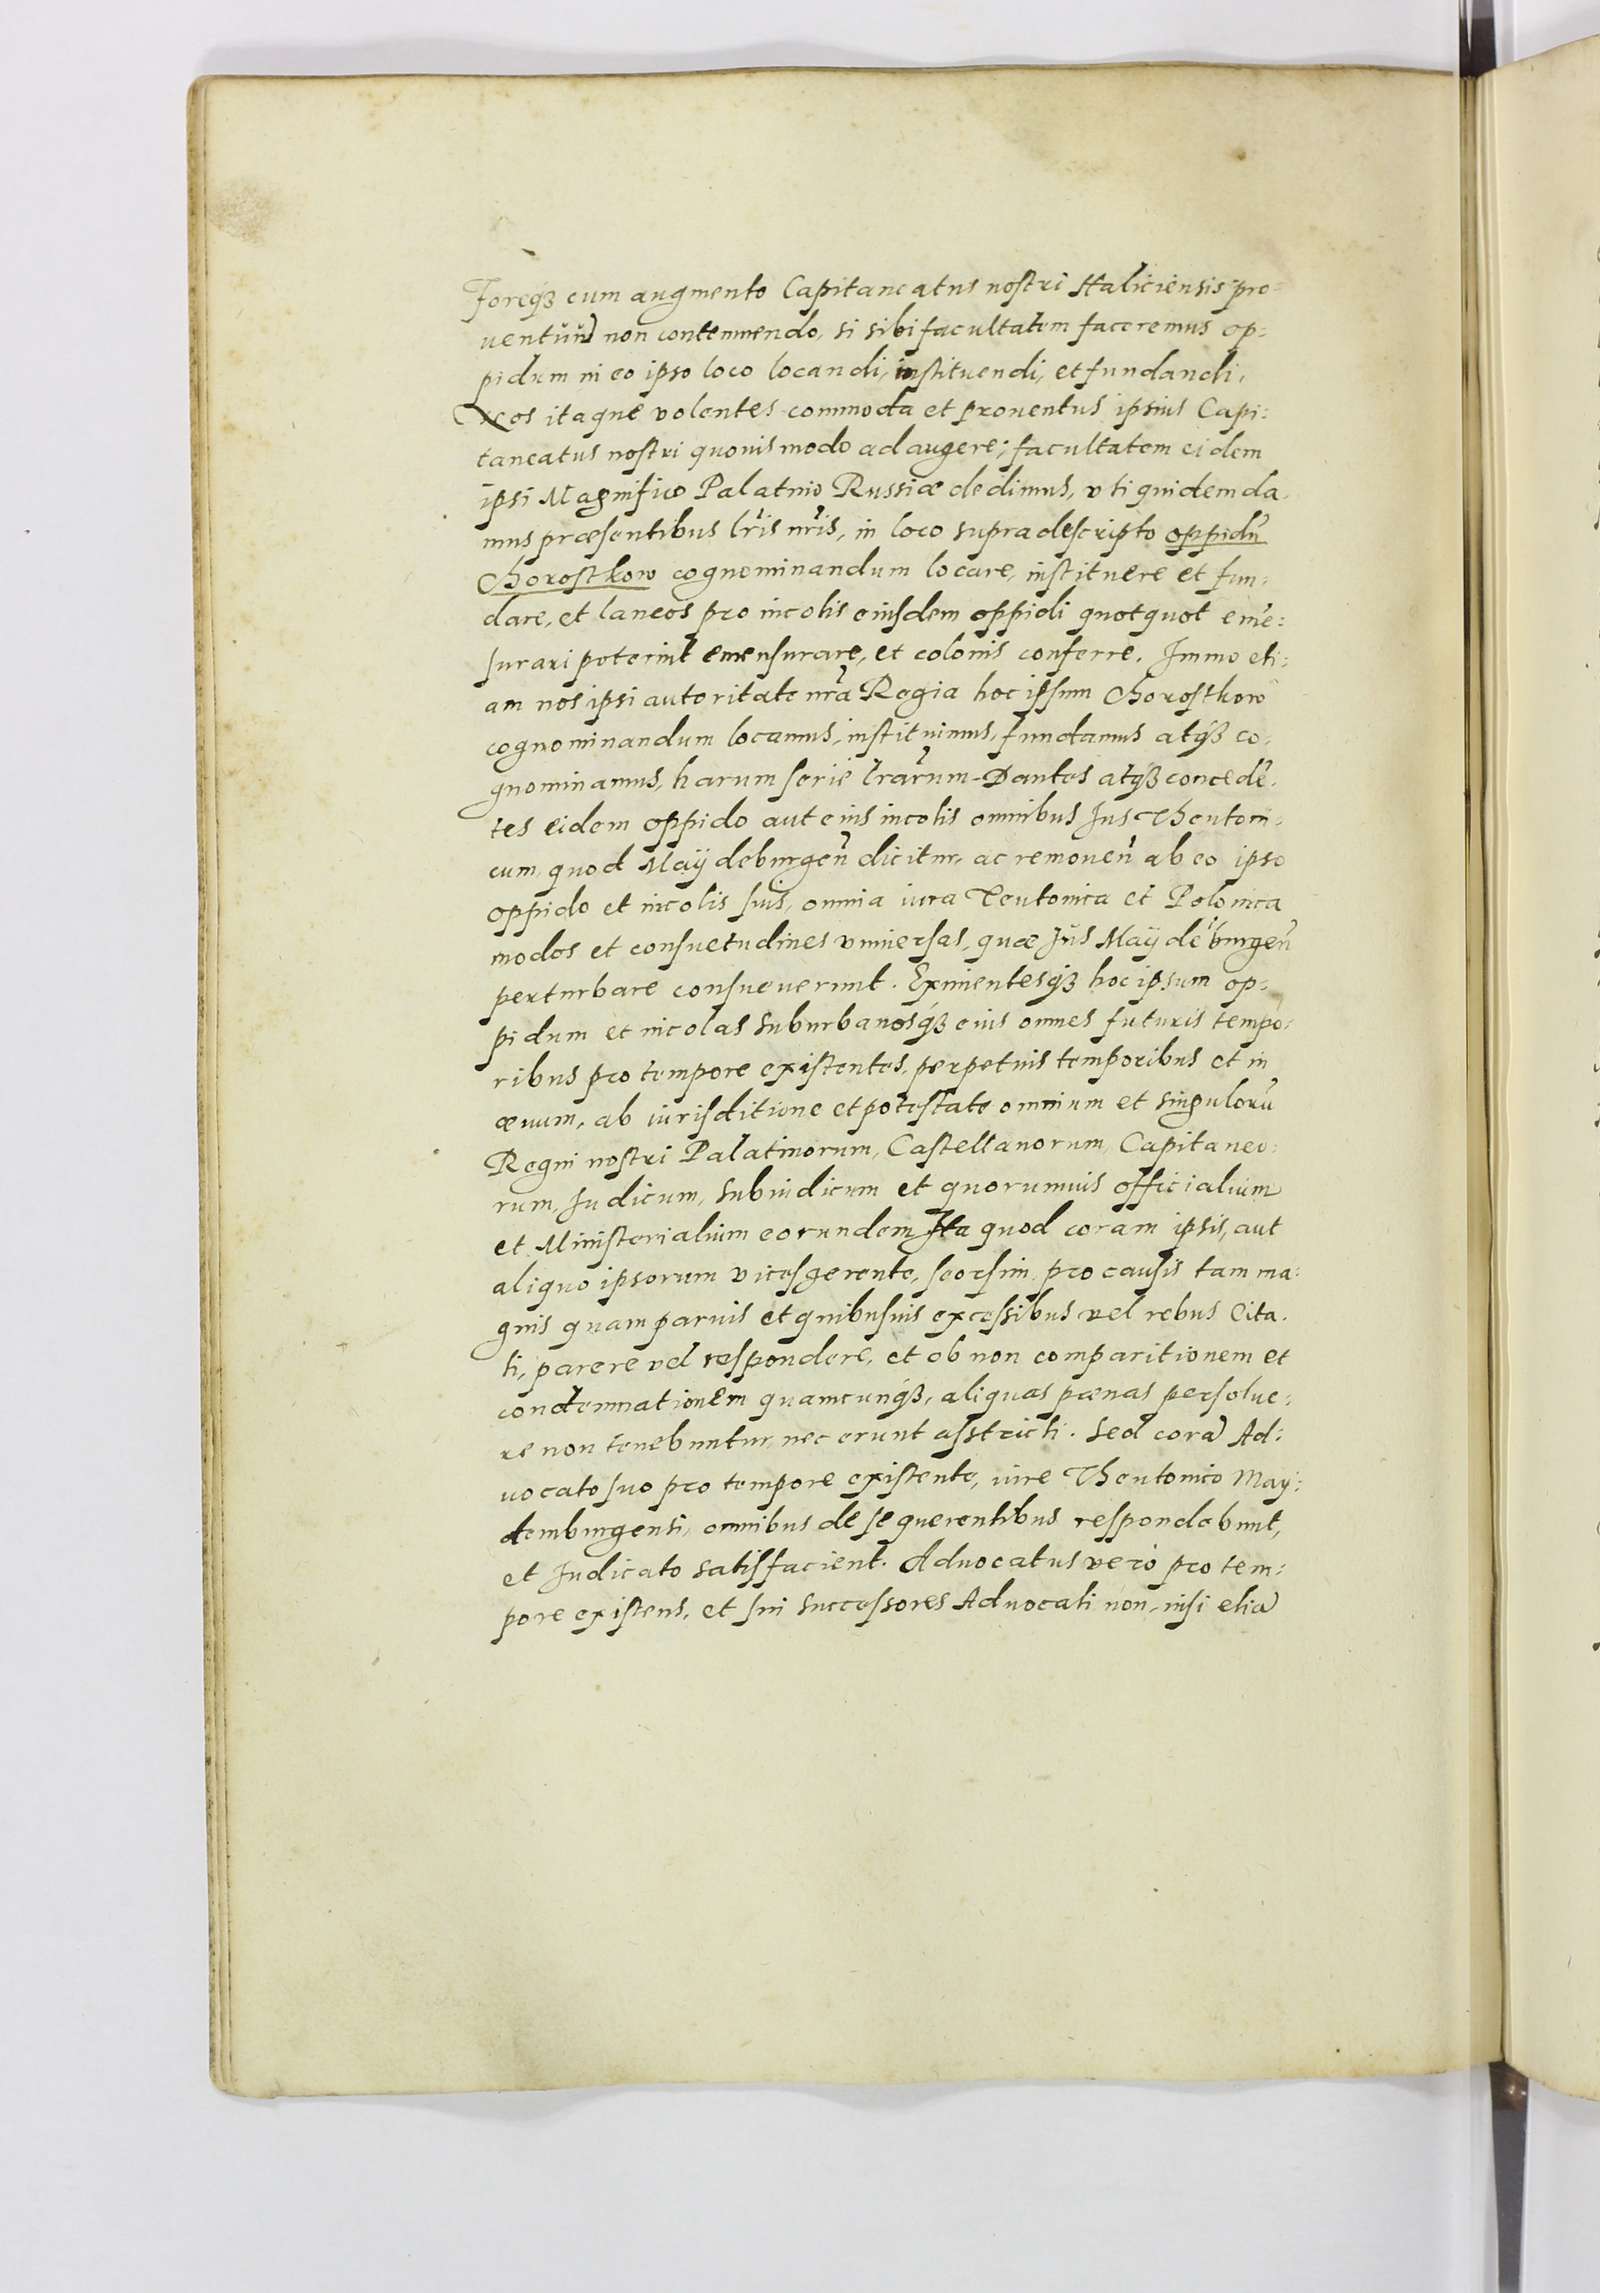 Foreq3 cum augmento Capitaneatus nostri Haliciensis pro-
uentuũ non contemnendo, si sibi facultatem faceremus op-
pidum in eo ipso loco locandi, instituendi, et fundandi.
Nos itaque volentes commoda et prouentus ipsius Capi-
taneatus nostri quouis modo adaugere; facultatem eidem
ipsi Magnifico Palatino Russiæ dedimus, vti quidem da-
mus præsentibus lr̃is nr̃is, in loco supra descripto oppidũ
Chorostkow cognominandum locare, instituere et fun-
dare, et laneos pro incolis eiusdem oppidi quotquot emẽ-
surari poterint emensurare, et colonis conferre. Immo eti-
am nos ipsi autoritate nr̃a Regia hoc ipsum Chorostkow
cognominandum locamus, instituimus, fundamus atq3 co-
gnominamus, harum serie lr̃arum. Dantes atq3 concedẽ-
tes eidem oppido aut eius incolis omnibus Jus Theutoni-
cum, quod Maÿdeburgeñ dicitur, ac remoueñ ab eo ipso
oppido et incolis suis, omnia iura Teutonica et Polonica
modos et consuetudines vniuersas, quæ Jus Maÿdeburgeñ
perturbare consueuerunt. Eximentesq3 hoc ipsum op-
pidum et incolas suburbanosq3 eius omnes futuris tempo-
ribus pro tempore existentes, perpetuis temporibus et in
æuum, ab iurisditione et potestate omnium et singulorũ
Regni nostri Palatinorum, Castellanorum, Capitaneo-
rum, Judicum, Subiudicum et quorumuis officialium
et Ministerialium eorundem Ita quod coram ipsis, aut
aliquo ipsorum vicesgerente, seorsim, pro causis tam ma-
gnis quam paruis et quibusuis excessibus vel rebus Cita-
ti, parere vel respondere, et ob non comparitionem et
condemnationem quamcunq3, aliquas pœnas persolue-
re non tenebuntur, nec erunt asstricti. Sed corã Ad-
uocato suo pro tempore existente, iure Theutonico May-
demburgensi, omnibus de se querentibus respondebunt,
et Judicato satisfacient. Aduocatus verò pro tem-
pore existens, et sui successores Aduocati non, nisi etiã